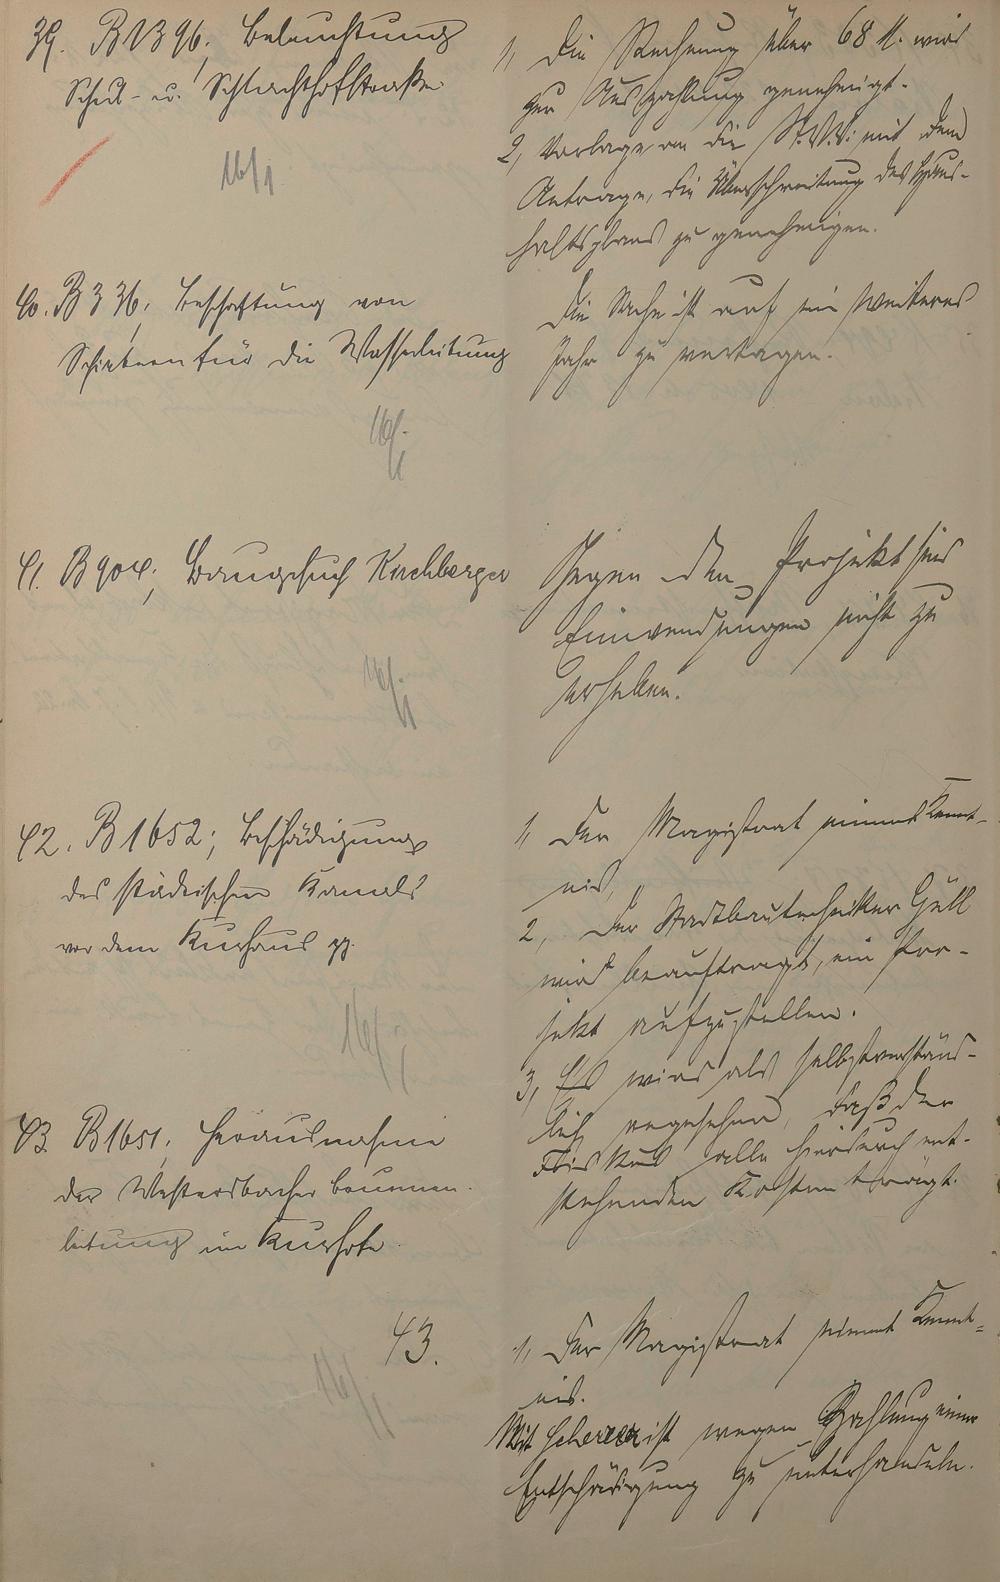 39. B 1396; Beleuchtung
Schul- u. Schlachthofstraße
16/1.
1, Die Rechnung über 68 M. wird
zur Auszahlung genehmigt.
2, Vorlage an die St.V.V. mit dem
Antrage, die Überschreitung des Haus-
haltsplans zu genehmigen.
40. B 336; Beschaffung von
Schiebern für die Wasserleitung
16/1
Die Sache ist auf ein weiteres
Jahr zu vertagen.
41. B 904; Baugesuch Kirchberger
16/1
Gegen den Projekt sind
Einwendungen nicht zu
erheben.
42. B 1652; Beschädigung
des städtischen Kanals
vor dem Kurhaus pp.
16/1
1, Der Magistrat nimmt Kennt-
nis,
2, Der Stadtbautechniker Güll
wird beauftragt, ein Pro-
jekt aufzustellen.
3, Es wird als selbstverständ-
lich angesehen, daß der
Fiskus alle hierdurch ent-
stehenden Kosten trägt.
43 B 1651; Herausnahme
der Westersbacher Brunnen-
leitung im Kurhofe.
43.
16/1
1, Der Magistrat nimmt Kennt-
nis.
Mit Scherer ist wegen Zahlung einer
Entschädigung zu unterhandeln.